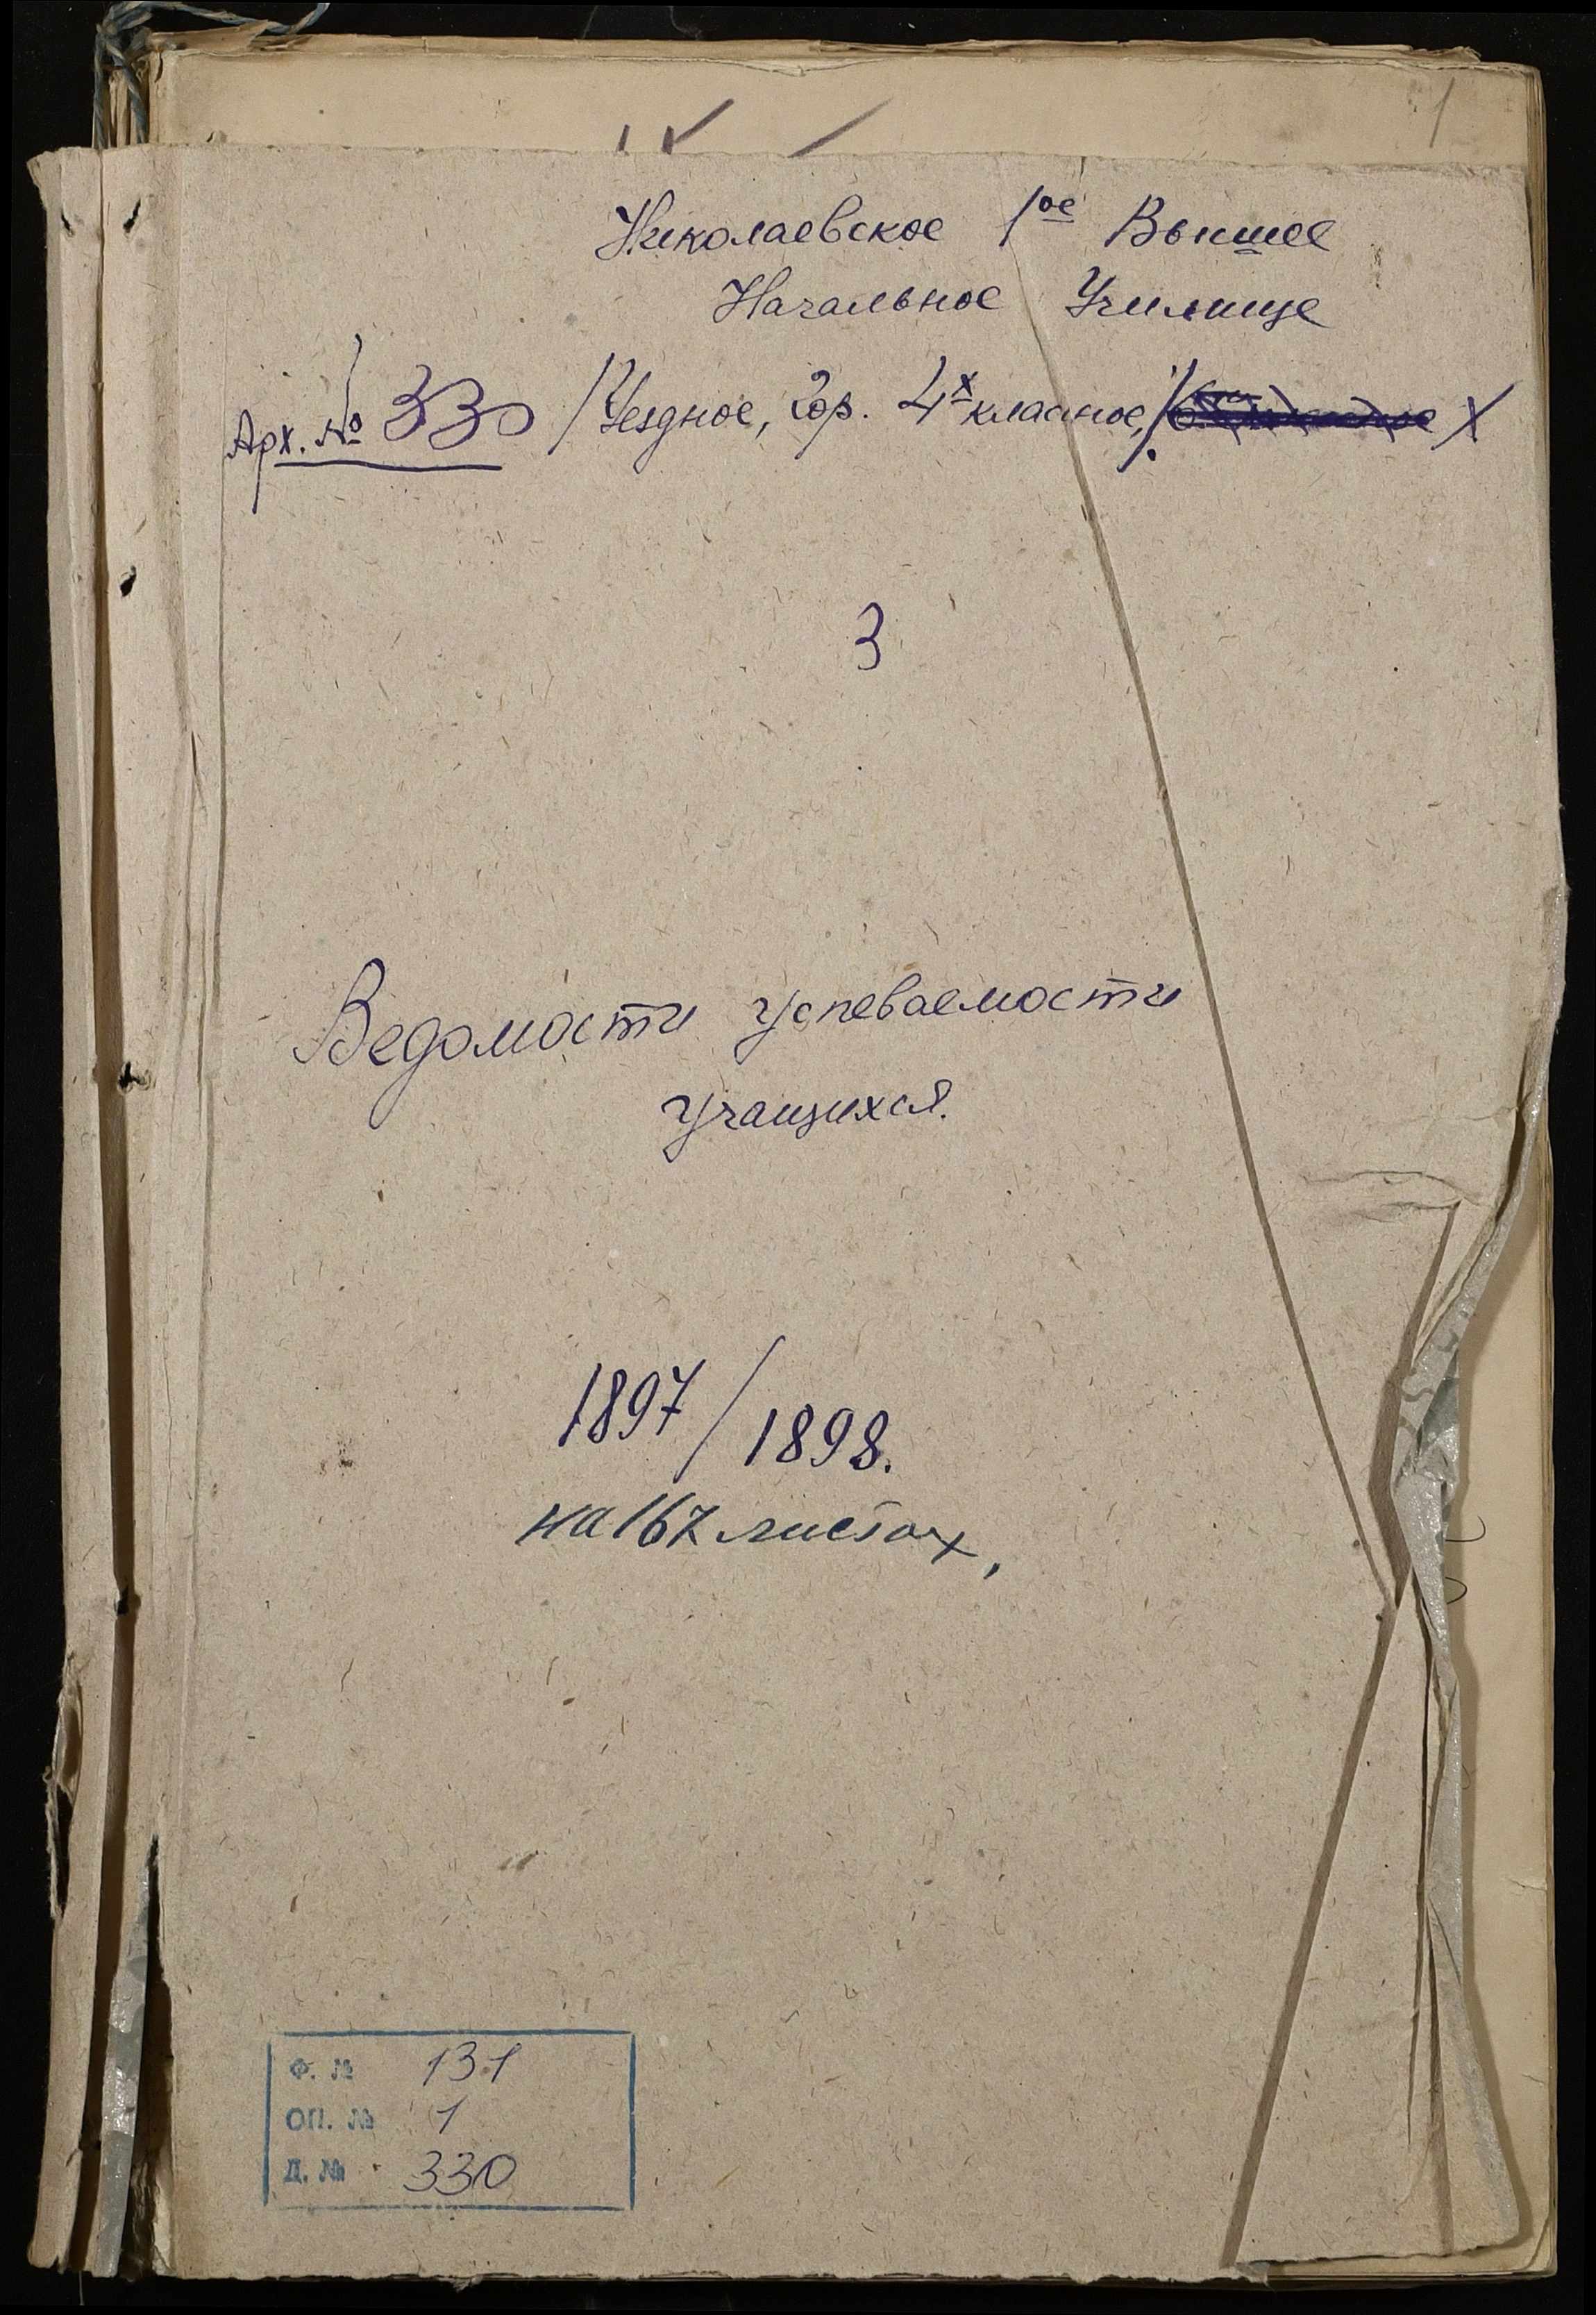 1
Николаевское 1ое Высшее
Начальное Училище
Арх. № 330 /Уездное, Гор. 4х классное,/
3
Ведомости успеваемости
учащихся.
1897/1898.
на 167 листах,
Ф. № 131
ОП. № 1
Д. № 330